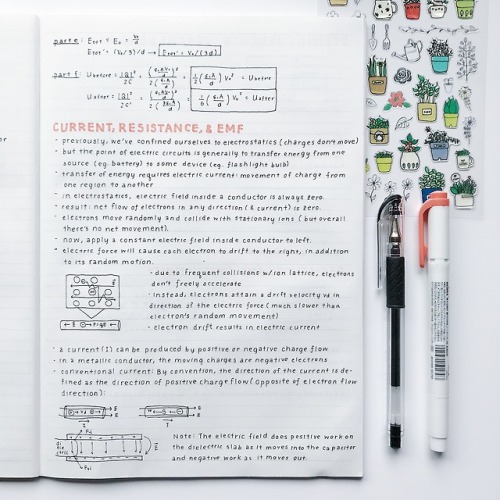 part e: Etot = E0 = V0/d
Etot' = (V0/3)/d → Etot' = V0/(3d)
part f: Ubefore = |Q|²/2C
= Ubefore
Uafter = |Q|²/2C'
= Uafter
CURRENT, RESISTANCE, & EMF
- previously, we've confined ourselves to electrostatics (charges don't move)
- but the point of electric circuits is generally to transfer energy from one
source (eg. battery) to some device (eg. flashlight bulb)
- transfer of energy requires electric current: movement of charge from
one region to another
- in electrostatics, electric field inside a conductor is always zero.
- result: net flow of electrons in any direction (& current) is zero.
- electrons move randomly and collide with stationary ions (but overall
there's no net movement).
- now, apply a constant electric field inside conductor to left.
- electric force will cause each electron to drift to the right, in addition
to its random motion.
- due to frequent collisions w/ion lattice, electrons
don't freely accelerate
- instead, electrons attain a drift velocity vd in
direction of the electric force (much slower than
electron's random movement)
- electron drift results in electric current
- a current (I) can be produced by positive or negative charge flow
- in a metallic conductor, the moving charges are negative electrons
- conventional current: By convention, the direction of the current is de-
fined as the direction of positive charge flow (opposite of electron flow
direction):
Note: The electric field does positive work on
the dielectric slab as it moves into the capacitor
and negative work as it moves out.